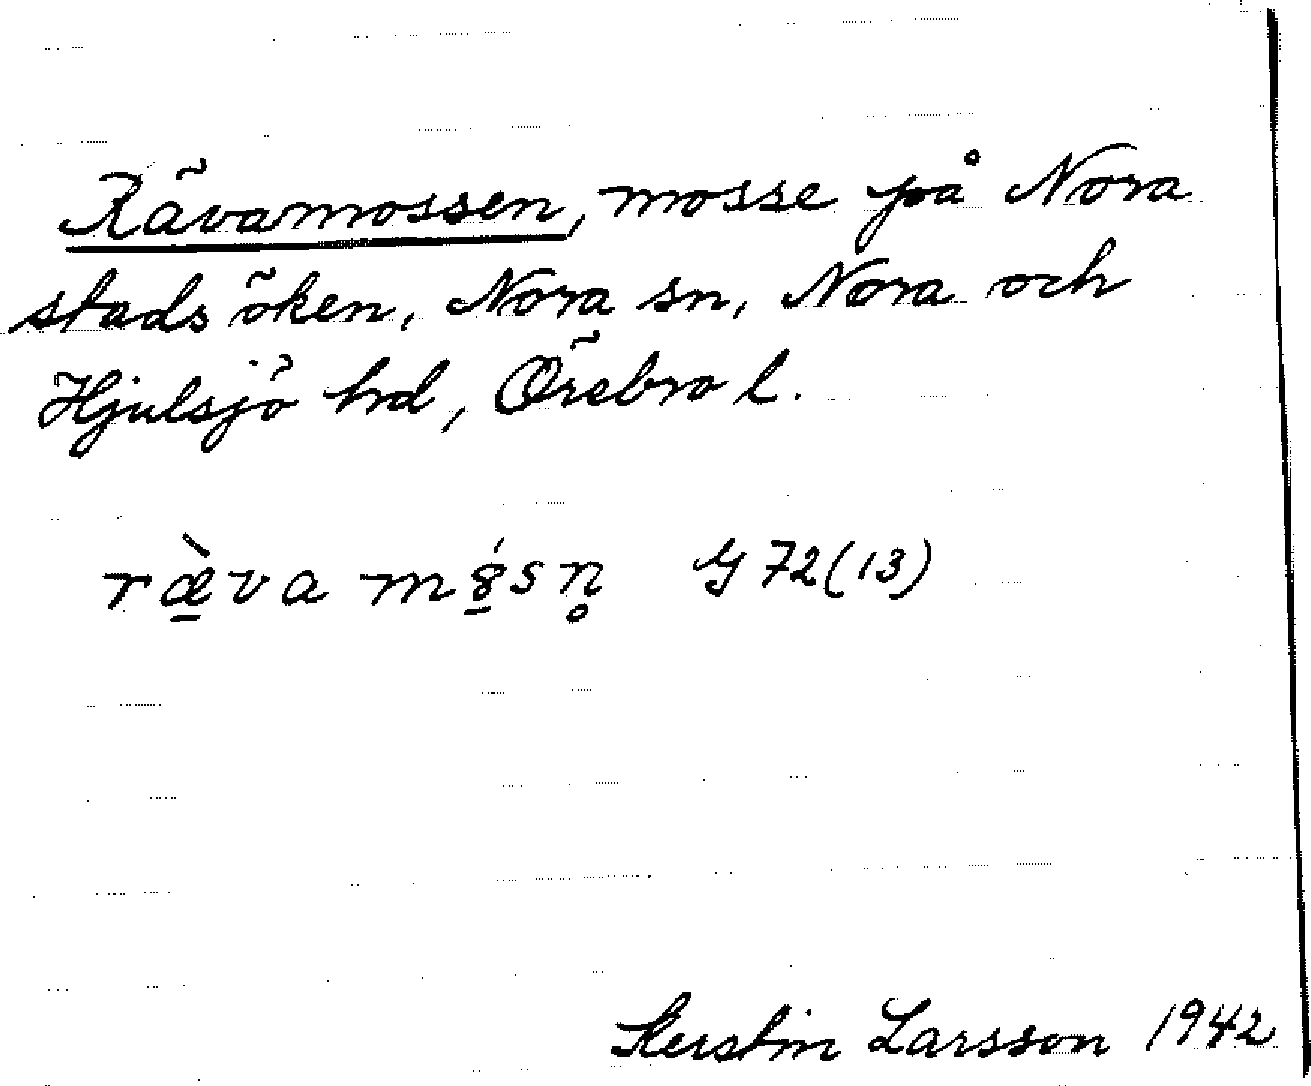 Rävamossen, mosse på Nora
stads öken, Nora sn, Nora och
Hjulsjö hrd, Örebro l.
ræ̠̀va m8̠́sn̥ G 72(13)
Kerstin Larsson 1942